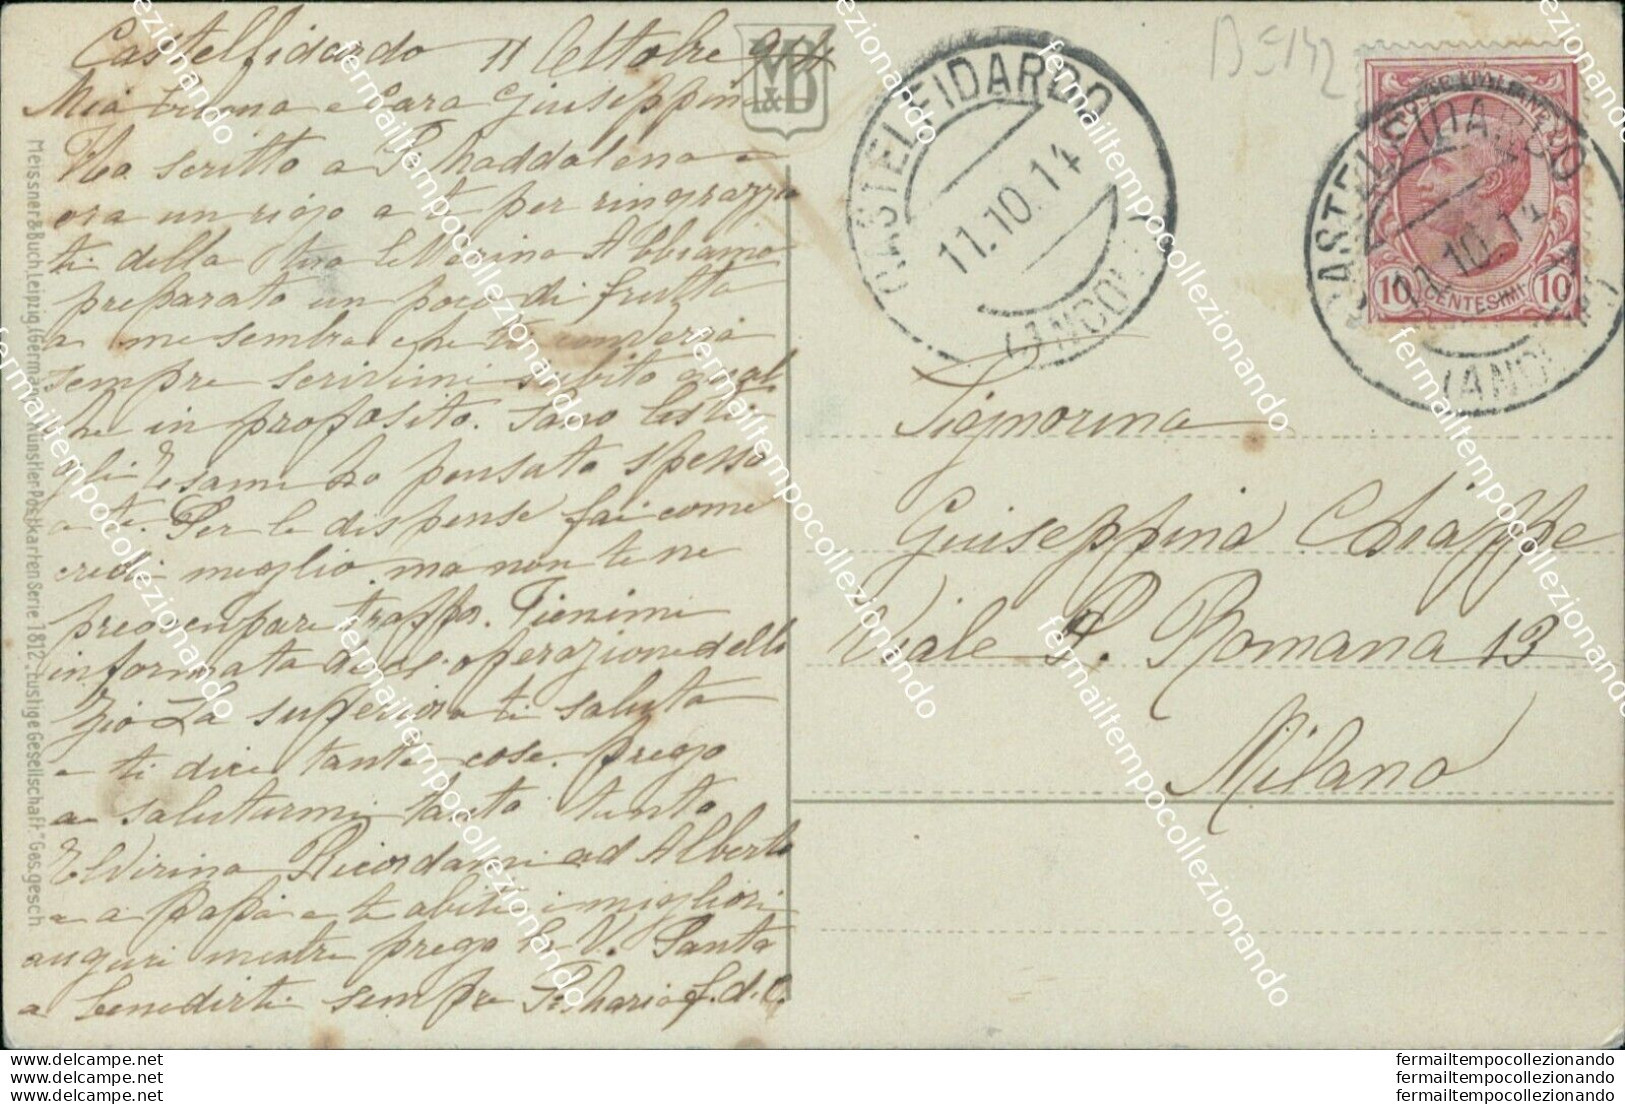 Castelfidardo 11 Ottobre 914
Mia buona e Cara Giuseppina
Ho scritto a Sr Maddalena e
ora un rigo a te per ringrazziar
ti della tua le Marina Abbiamo
preparato un poco di frutta
a me sembra che ti converrà
sempre scrivimi subito qual
che in proposito. Saro lesti
gli Esami ho pensato spesso
a te. Per le dispense fai come
credi meglio ma non te ne
preoccupare troppo. Tienimi
informata del operazione dello
Zio La superiora ti saluta
e ti dice tante cose. prego
a salutarmi tanto tanto
Elvirina Ricordami ad Alberto
e a papà e te abiti i migliori
auguri mentre prego la V. Santa
a benedirti sempre Sr Maria f.d.C.
Meissner & Buch, Leipzig, (Germany) Künstler Postkarten Serie 1812 „Lustige Gesellschaft." Ges. gesch
M&B
CASTELFIDARDO
11.10.14
(ANCONA)
B5142
POSTE ITALIANE
10 CENTESIMI 10
CASTELFIDARDO
11.10.14
(ANCONA)
Signorina
Giuseppina Chiappe
Viale P. Romana 13
Milano
fermailtempocollezionando
www.delcampe.net
www.delcampe.net
www.delcampe.net
fermailtempocollezionando
fermailtempocollezionando
fermailtempocollezionando